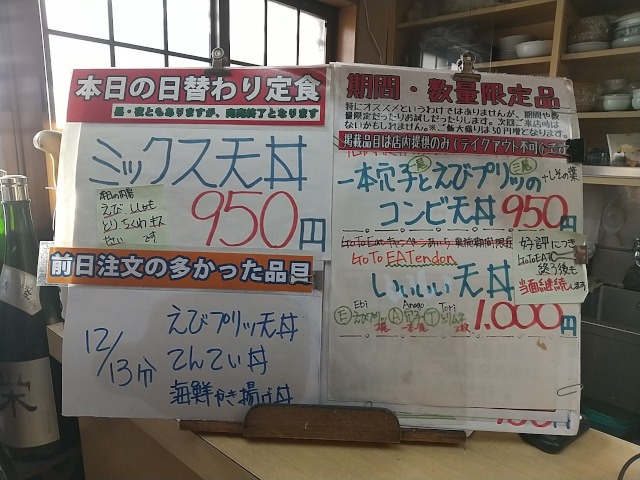 本日の日替わり定食
昼・夜ともありますが、肉肉終了となります
ミックス天丼
本日の内容
えび
とり ちくわ
950円
前日注文の多かった品目
12/13分
えびプリッ天丼
てんてい丼
海鮮かき揚げ丼
期間・数量限定品
特にオススメというわけではありませんが、期間や数
量限定だったりお試しだったりします。次回ご来店時は
ないかもしれません。※ご飯大盛りは50円増となります。
掲載品目は店内提供のみ(テイクアウト不可)
一本穴子とえびプリッの
+しその葉
コンビ天丼 950円
GoTo EATendon
いいいい天丼
好評につき
GoToEAT
終了後も
当面継続します
Ebi Anago Tori
E えびプリッ A 穴子 T とりムネ
1,000円